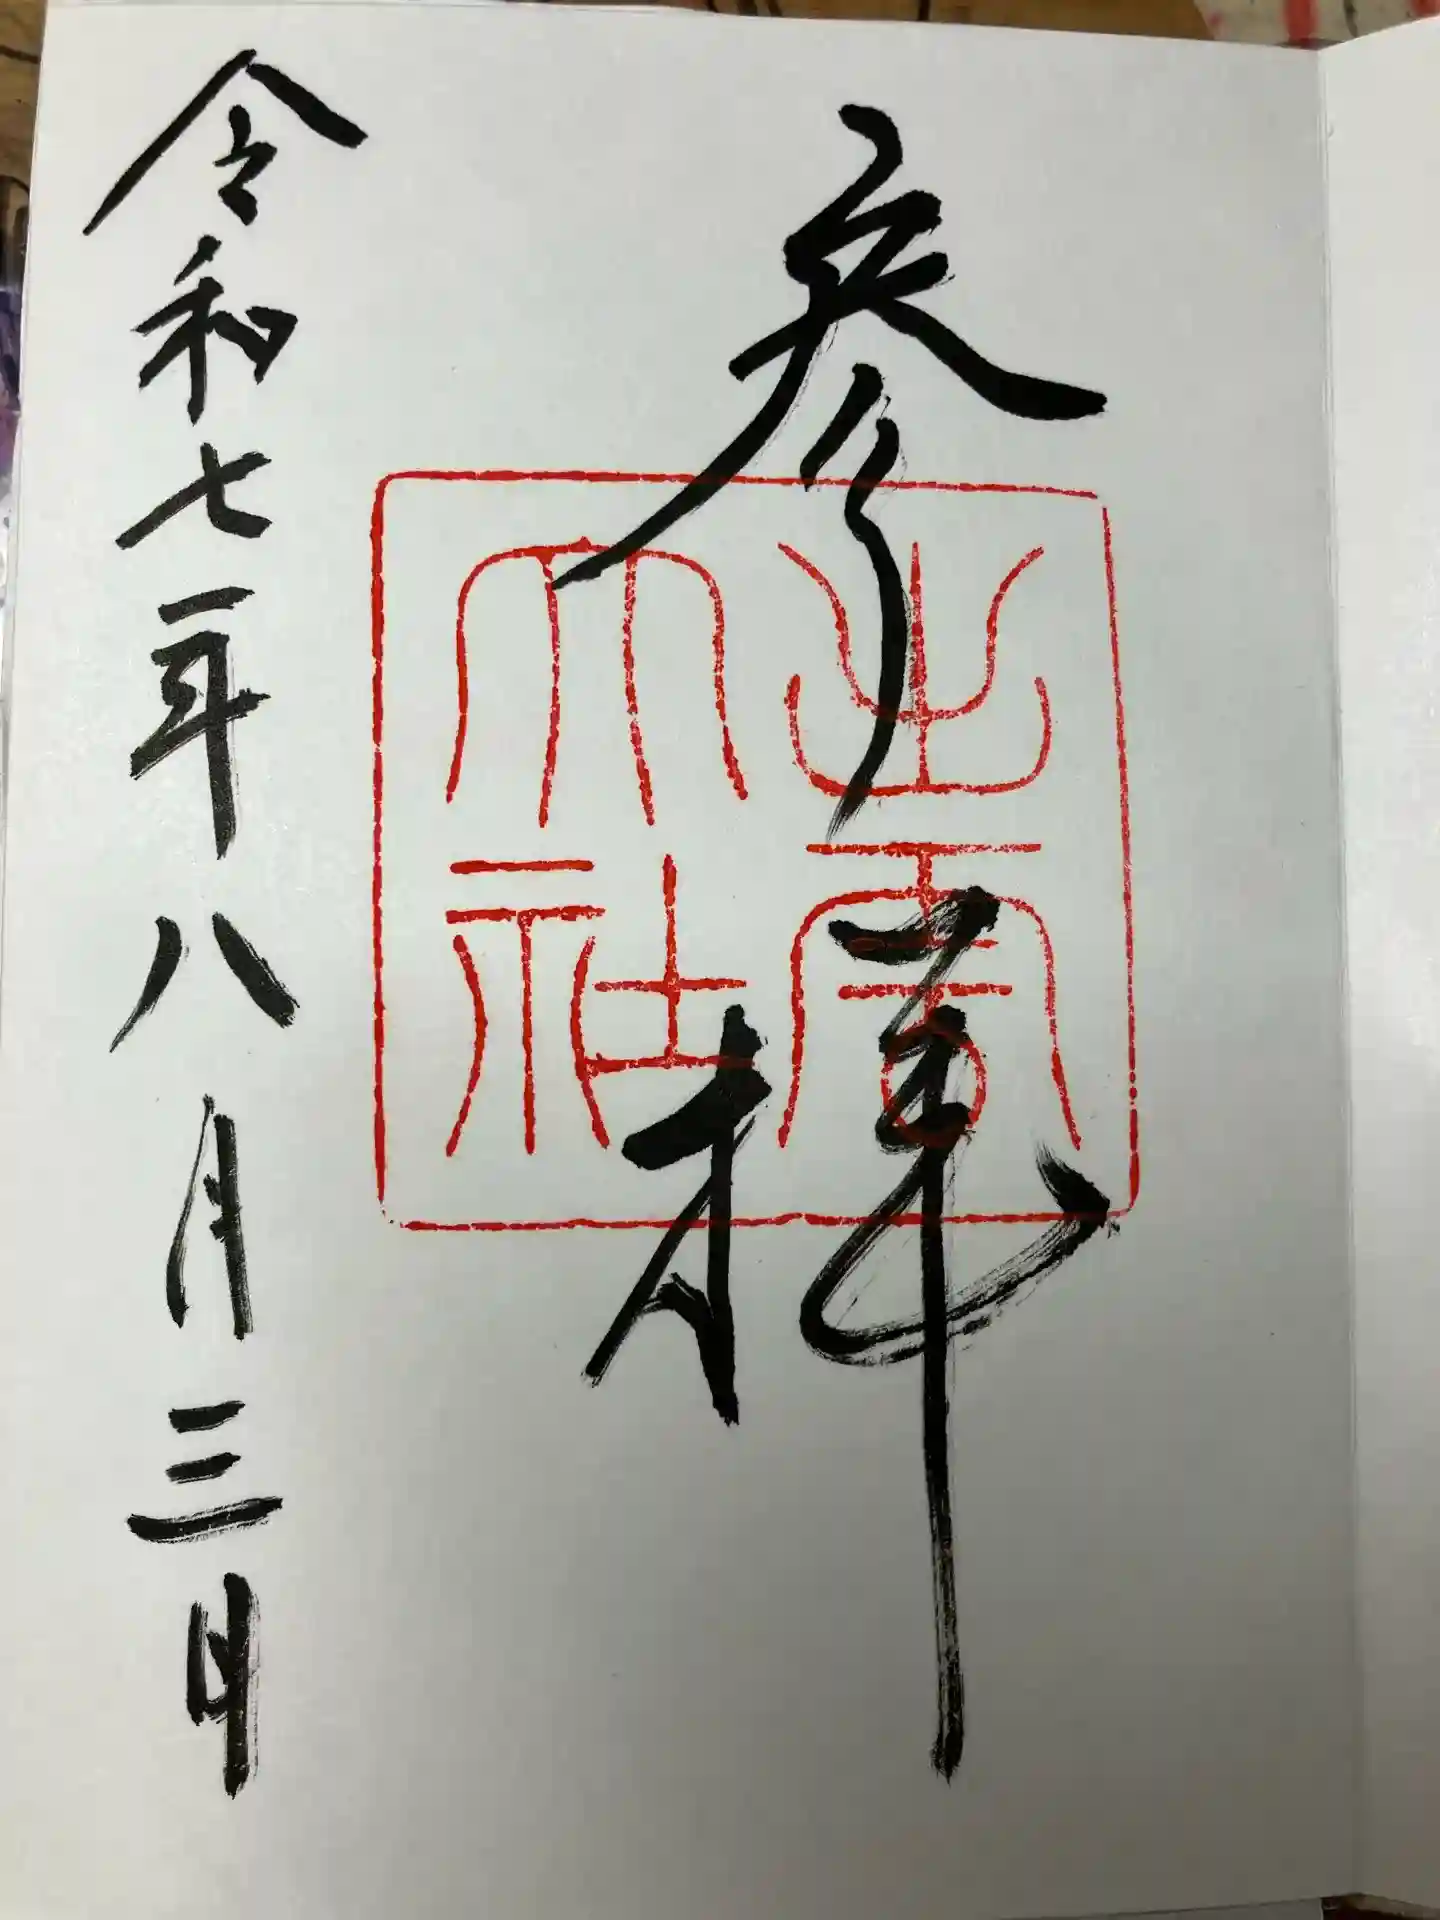 参拝
出雲大社
令和七年八月三日